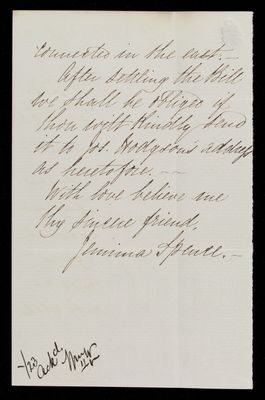 connected in the east.—
After settling the Bill
we shall be obliged if
thou wilt kindly send
it to Jos. Hodgson's address
as heretofore. —
With love believe me
thy sincere friend,
Jemima Spence.—
Ackd